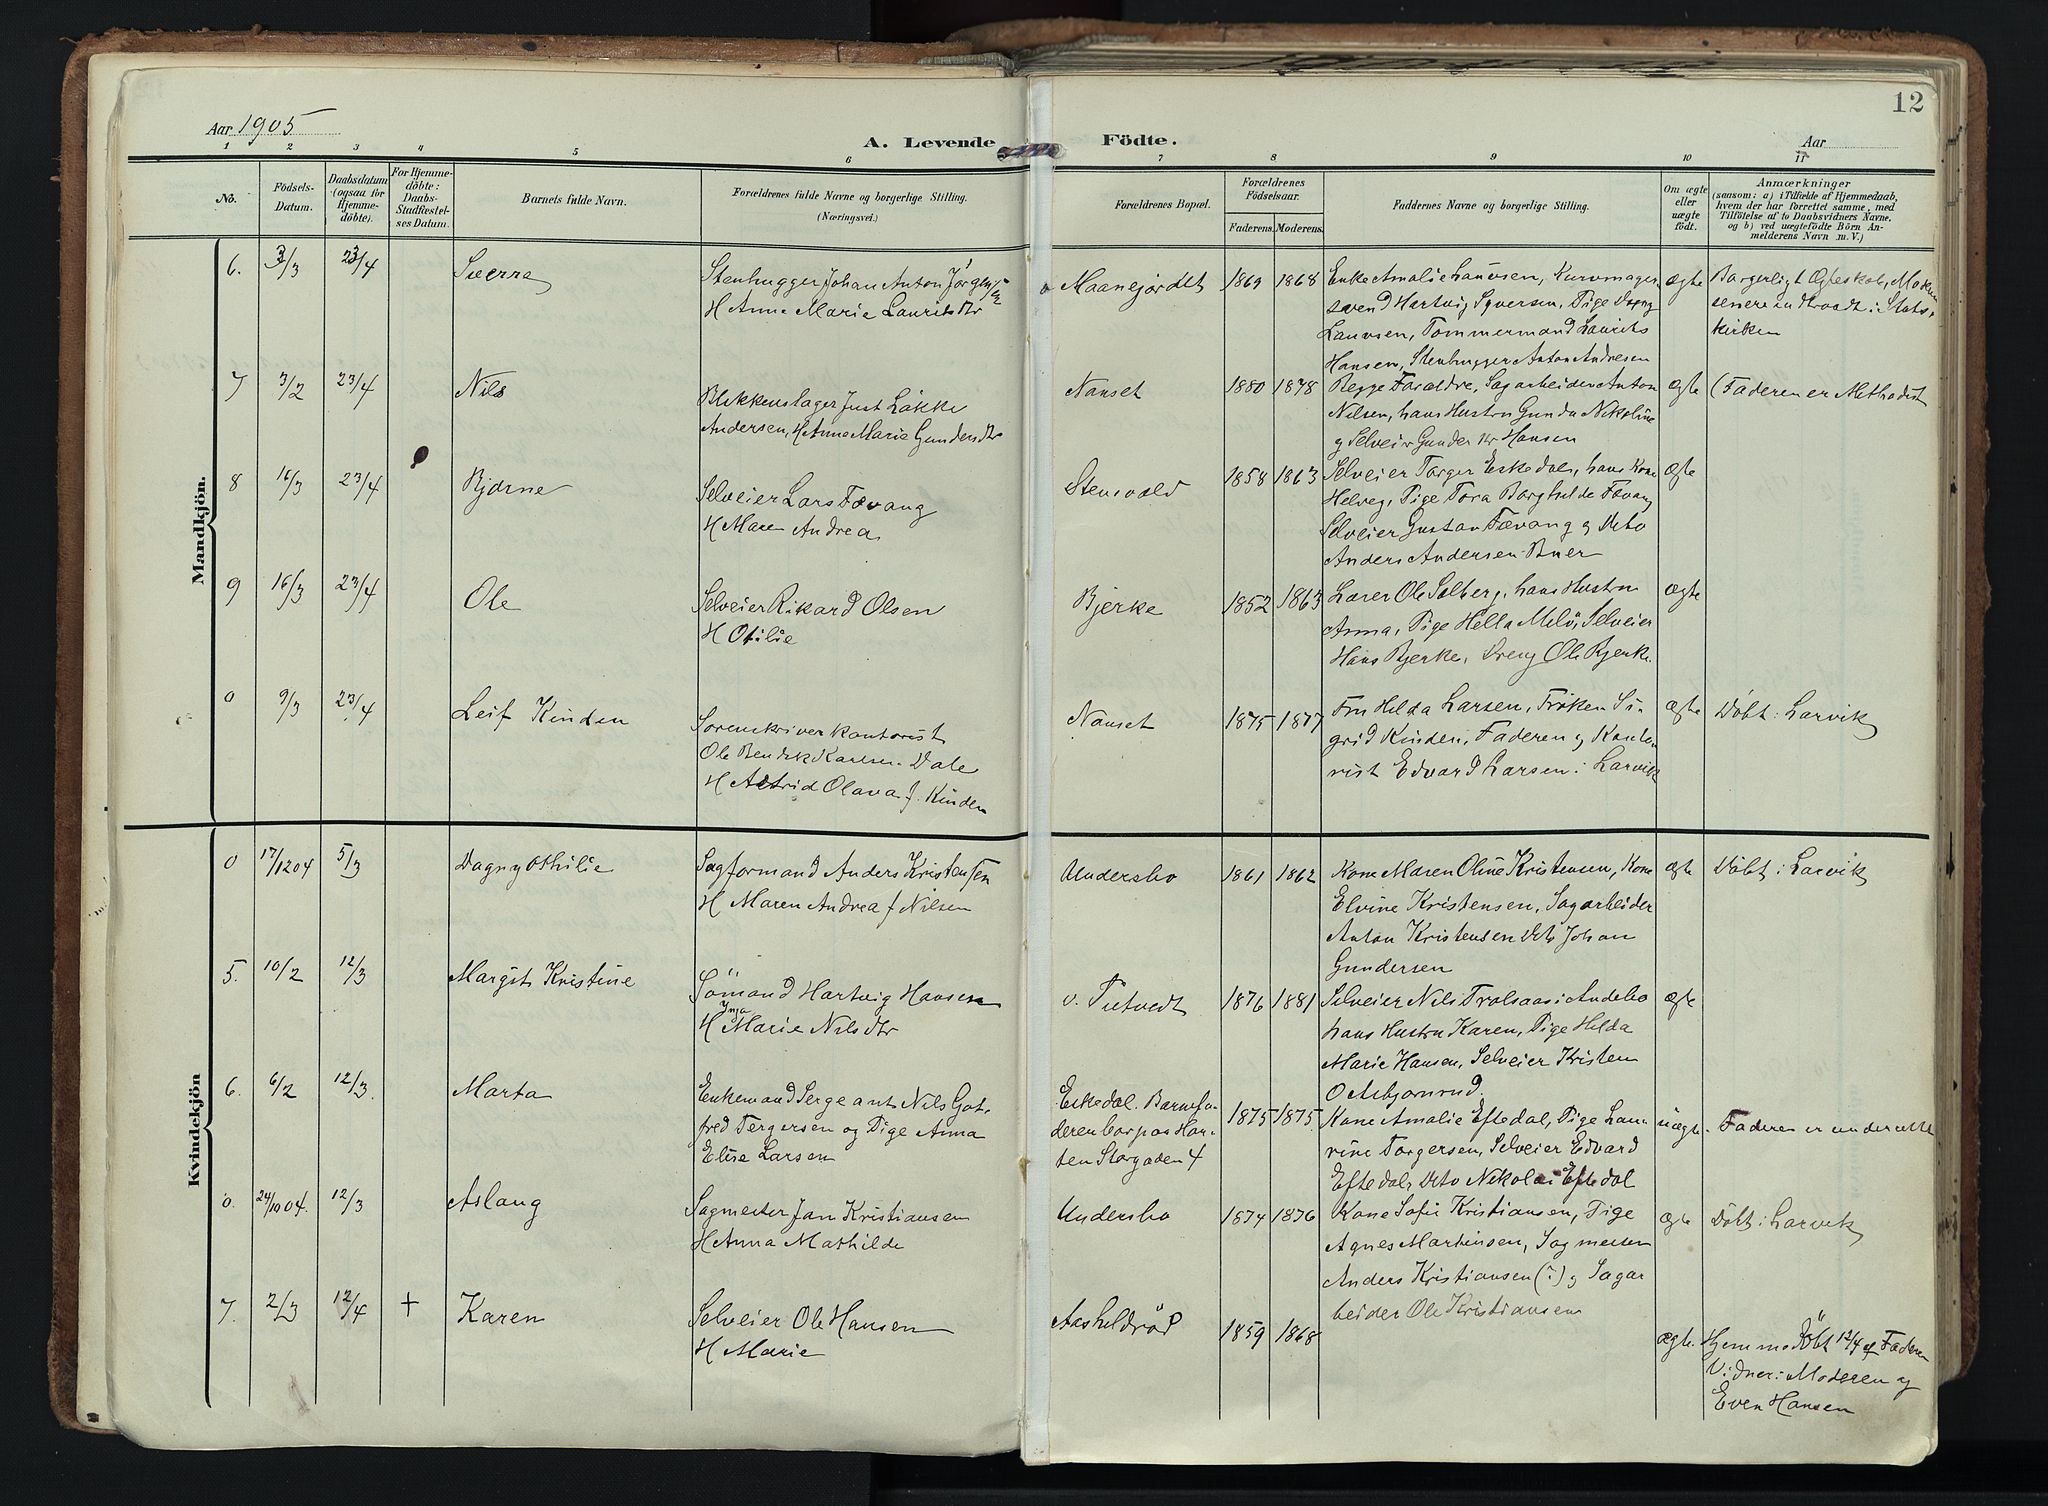 12
Aar 1905
A. Levende Födte.
Aar
1 2 3 4 5 6 7 8 9 10 11
No.
Födsels-Datum.
Daabsdatum (ogsaa for Hjemme-döbte).
For Hjemme-döbte: Daabs-Stadfæstelses Datum.
Barnets fulde Navn.
Forældrenes fulde Navne og borgerlige Stilling.
(Næringsvei.)
Forældrenes Bopæl.
Forældrenes Födselsaar.
Faderens. Moderens.
Faddernes Navne og borgerlige Stilling.
Om ægte eller uægte födt.
Anmærkninger
(saasom: a) i Tilfælde af Hjemmedaab,
hvem der har forrettet samme, med
Tilföielse af to Daabsvidners Navne,
og b) ved uægtefödte Börn An-
melderens Navn m. V.)
Mandkjön.
6. 3/3 23/4 Sverre
Stenhugger Johan Anton Jörgensen
H Anne Marie Lauritsdtr
Maanejordet 1869 1868
Enke Amalie Laursen, Kurvmager
svend Hartvig Syversen, Pige Dagny
Laursen, Tømmermand Laurits
Hansen, Stenhugger Anton Andresen
ægte
Borgerligt Ægteskab, Moderen
senere indtraadt i Stats-
kirken
7 3/2 23/4 Nils
Blikkenslager Just Løkke
Andersen, H Anne Marie Gundersdtr
Nanset 1880 1878
Begge Forældre, Sagarbeider Anton
Nilsen, hans Hustru Gunda Nikoline
og Selveier Gunder Hansen
ægte (Faderen er Methodist
8 16/3 23/4 Bjarne
Selveier Lars Fævang
H Maren Andrea
Stensvold 1858 1863
Selveier Torger Eskedal, hans Kone
Helveg, Pige Tora Borghilde Fævang
Selveier Gustav Fævang og Dito
Anders Andersen Buer
ægte
9 16/3 23/4 Ole
Selveier Rikard Olsen
H Otilie
Bjerke 1852 1863
Lærer Ole Solberg, hans Hustru
Anna, Pige Hella Melö, Selveier
Hans Bjerke, Dreng Ole Bjerke.
ægte
0 9/3 23/4 Leif Kinden
Sorenskriverkontorist
Ole Bendik Karlsen Dale
H Astrid Olava f. Kinden
Nanset 1875 1877
Fru Hilda Larsen, Frøken Si-
grid Kinden, Faderen og Konto-
rist Edvard Larsen i Larvik
ægte Döbt i Larvik
Kvindekjön
0 17/12 04 5/3 Dagny Othilie
Sagformand Anders Kristensen
H Maren Andrea f Nilsen
Undersbo 1861 1862
Kone Maren Oline Kristensen, Kone
Elvine Kristensen, Sagarbeider
Anton Kristensen Dito Johan
Gundersen
ægte Döbt i Larvik
5. 10/2 12/3 Margit Kristine
Sömand Hartvig Hansen
H Inga Marie Nilsdtr
v. Tutvedt 1876 1881
Selveier Nils Trolsaas i Andebo
hans Hustru Karen, Pige Hilda
Marie Hansen, Selveier Kristen
O Asbjørnrud.
ægte
6. 6/2 12/3. Marta
Enkemand Sergeant Nils Got-
fred Tergersen og Pige Anna
Elise Larsen
Eskedal. Barnefa-
deren bor paa Hor-
ten Storgaden 4
1875 1875.
Kone Amalie Eftedal, Pige Lau-
rine Torgersen, Selveier Edvard
Eftedal, Dito Nikolai Eftedal
uægte. Faderen er underrettet
0. 24/10 04. 12/3 Aslaug
Sagmester Jan Kristiansen
H Anna Mathilde
Undersbo 1874 1876
Kone Sofie Kristiansen, Pige
Agnes Martinsen, Sagmester
Anders Kristiansen (?) og Sagar
beider Ole Kristiansen
ægte Döbt i Larvik
7. 2/3 12/4 + Karen
Selveier Ole Hansen
H Marie
Aasheldröd 1859 1868
ægte. Hjemmedöbt 12/4 af Faderen
Vidner: Moderen og
Even Hansen